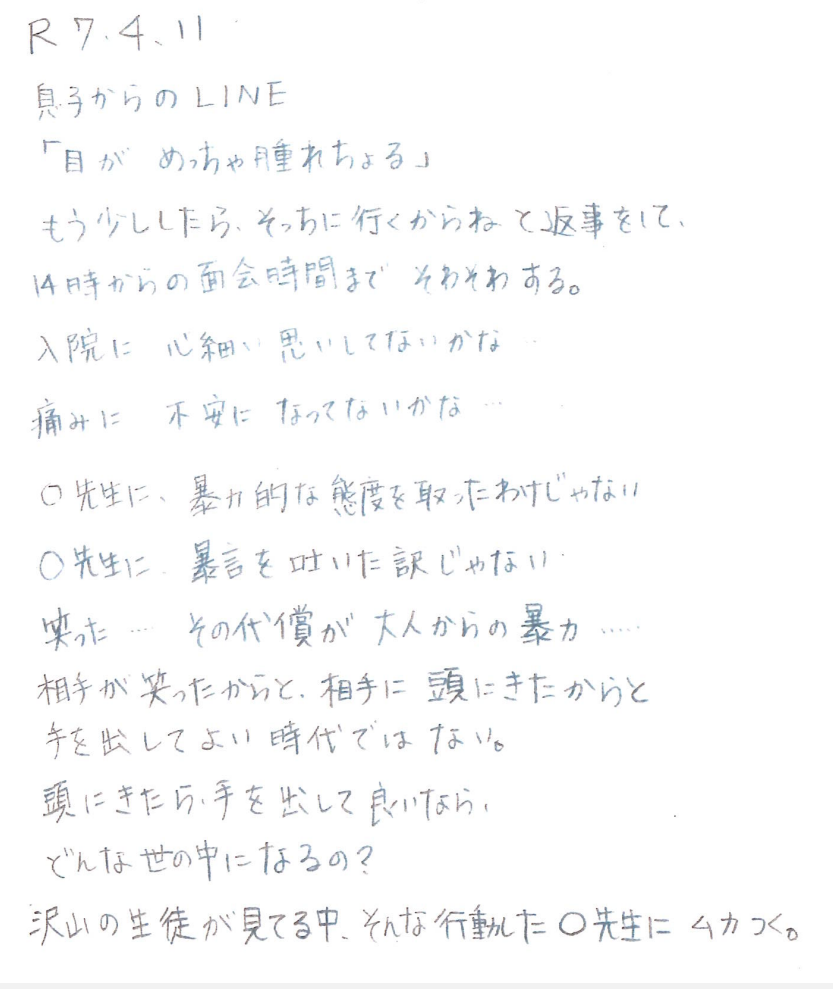 R7.4.11
息子からのLINE
「目が めっちゃ腫れちょる」
もう少ししたら、そっちに行くからね と返事をして、
14時からの面会時間まで そわそわする。
入院に 心細い思いしてないかな…
痛みに 不安になってないかな…
〇先生に、暴力的な態度を取ったわけじゃない
〇先生に 暴言を吐いた訳じゃない
笑った… その代償が 大人からの暴力……
相手が笑ったからと、相手に頭にきたからと
手を出してよい時代ではない。
頭にきたら、手を出して良いなら、
どんな世の中になるの?
沢山の生徒が見てる中、そんな行動した〇先生に ムカつく。